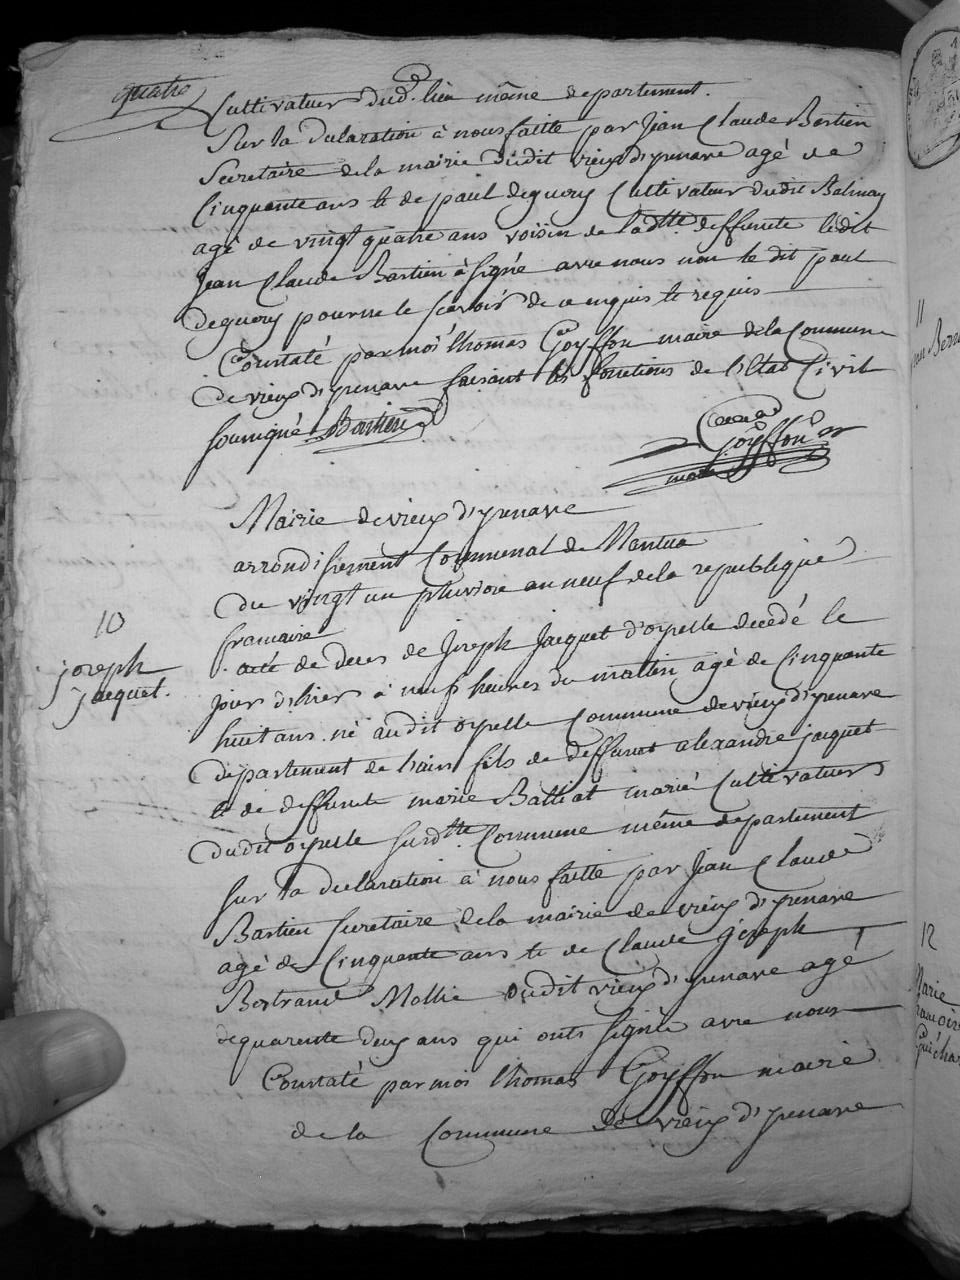 quatre
Cultivateur dud. lieu même departement.
Sur la declaration à nous faitte par Jean Claude Bastien
Secretaire de la mairie dudit vieux d'yzenave agé de
Cinquante ans et de paul deguery Cultivateur dudit Balmay
agé de vingt quatre ans voisin de ladtte deffunte ledit
Jean Claude Bastien à signé avec nous non le dit paul
deguery pour ne le scavoir de ce enquis et requis
Constaté par moi thomas Goyffon maire de la Commune
de vieux d'yzenave faisant les fonctions de l'Etat Civil
soussigné Bastien
Goyffon
maire
Mairie de vieux d'yzenave
arrondissement Communal de Nantua
du vingt un pluviose an neuf de la republique
francaise
10
joseph
jacquet.
acte de deces de Joseph Jacquet d'oyselle decédé le
jour d'hier à neuf heures du mattin agé de Cinquante
huit ans né audit oyselle Commune de vieux d'yzenave
departement de l'ain fils de deffunt alexandre jacquet
et de deffunte marie Balliat marié Cultivateur
dudit oyselle surdtte Commune même departement
sur la declaration à nous faitte par Jean Claude
Bastien secretaire de la mairie de vieux d'yzenave
agé de Cinquante ans et de Claude joseph
Bertrand Mollie dudit vieux d'yzenave agé
de quarente deux ans qui onts signé avec nous
Constaté par moi thomas Goyffon maire
de la Commune de vieux d'yzenave
11
12
Marie